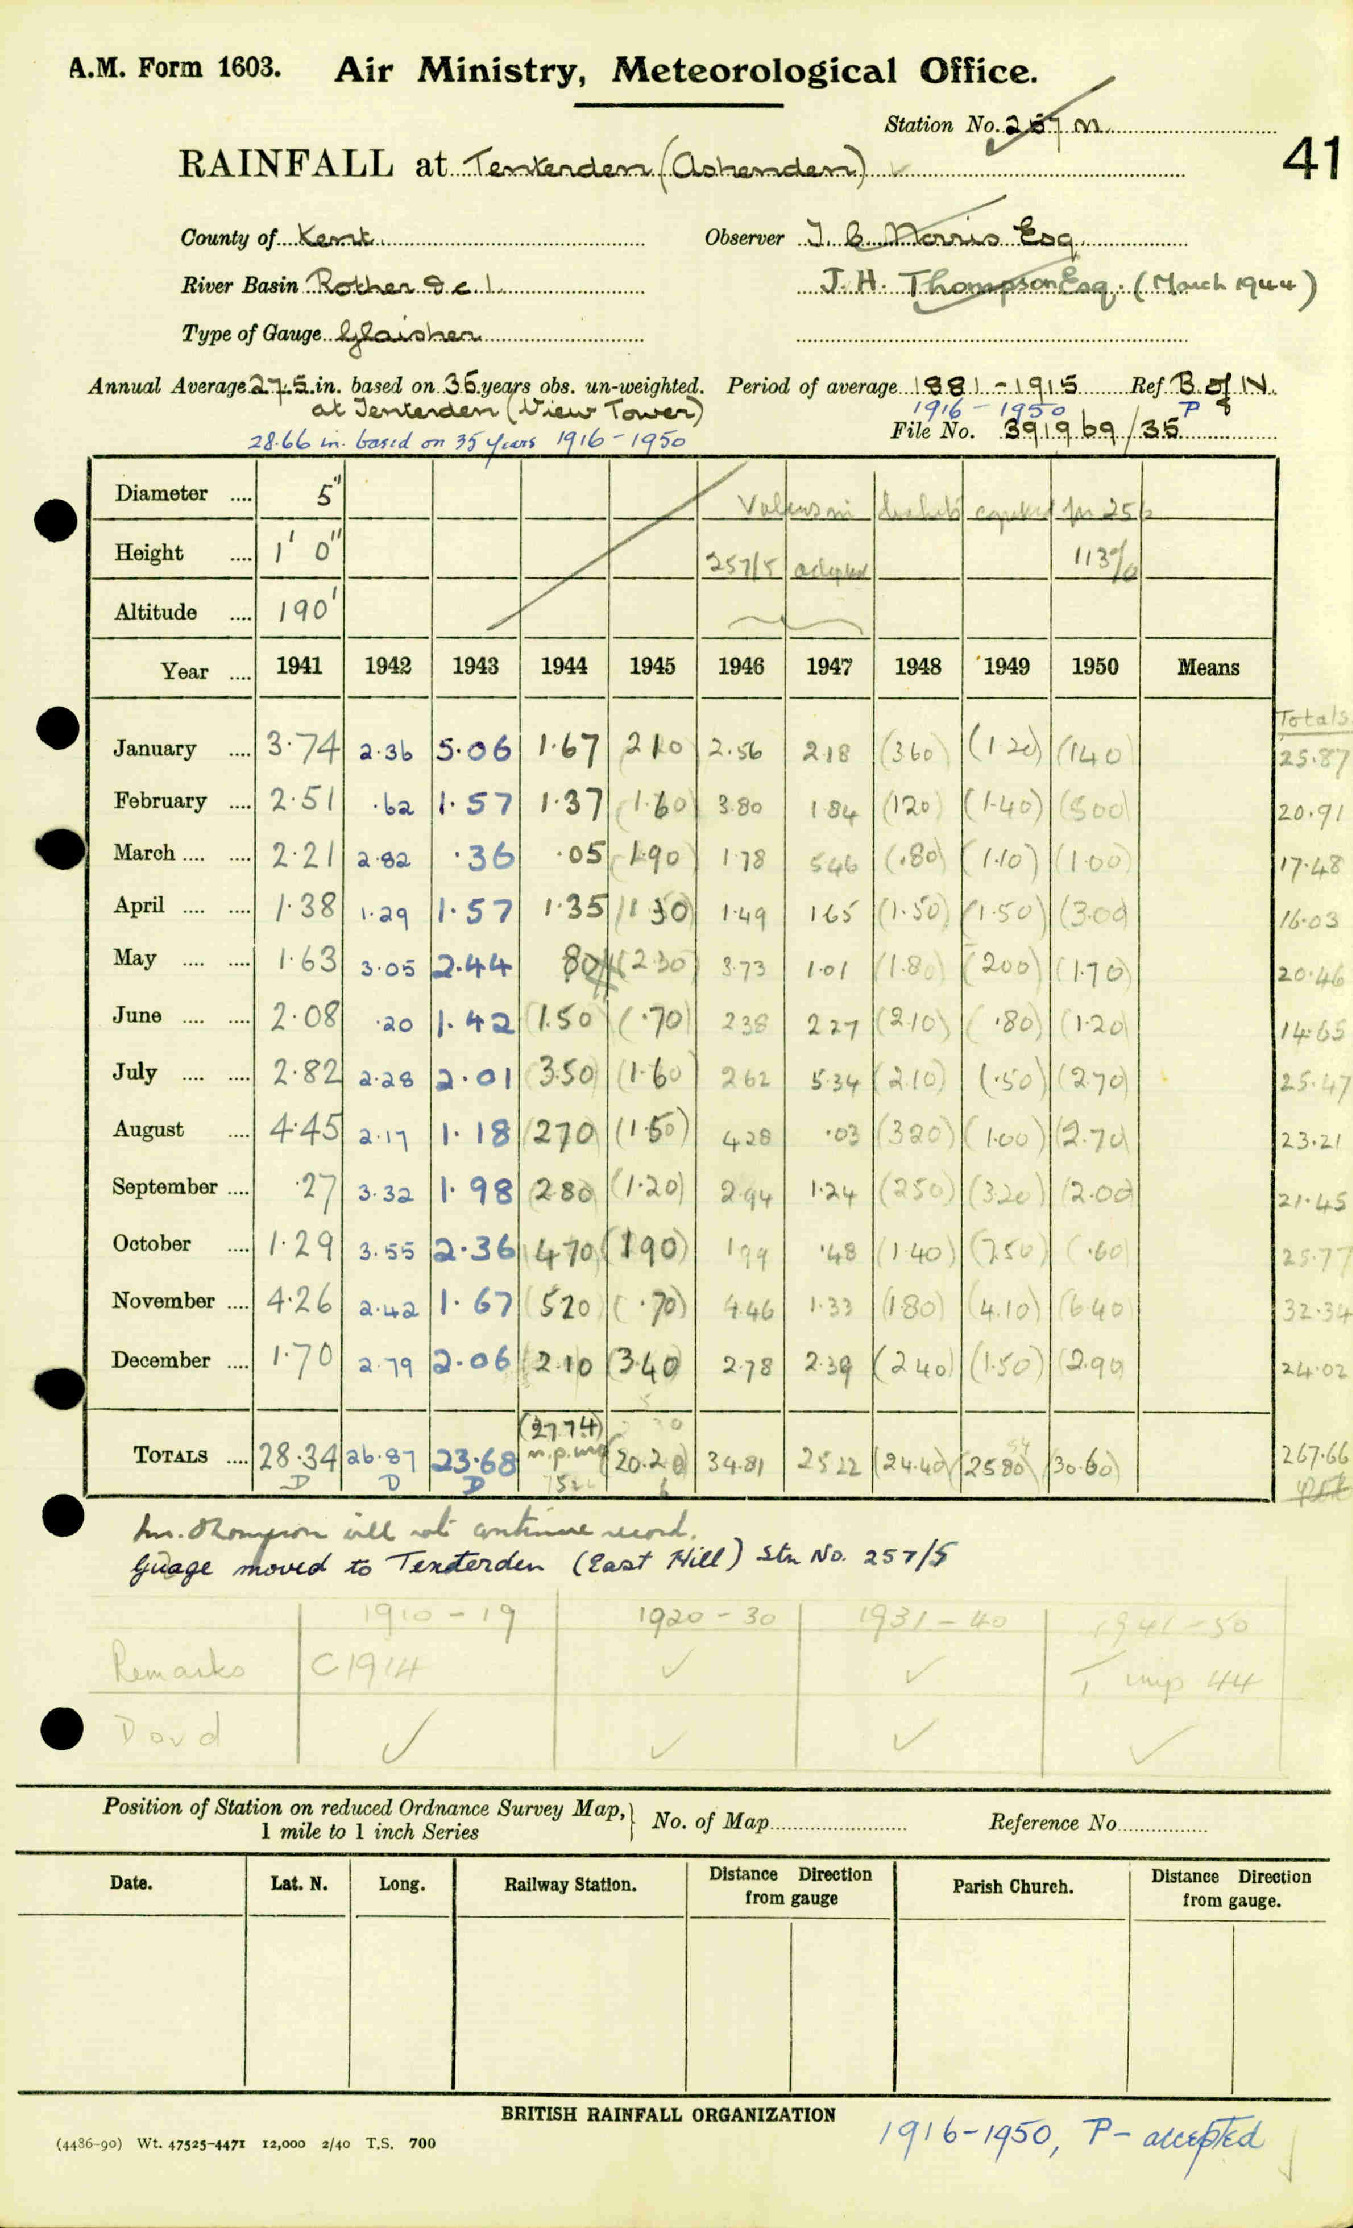 A.M. Form 1603. Air Ministry, Meteorological Office.
Station No. 257 M
41
RAINFALL at Tenterden (Ashenden)
County of Kent Observer I. C. Norris Esq
River Basin Rother &c 1 J. H. Thompson Esq. (March 1944)
Type of Gauge Glaisher
Annual Average 27.5 in. based on 35 years obs. un-weighted. Period of average 1881-1915 Ref B. of N.
at Tenterden (View Tower) 1916-1950 P 8
28.66 in. based on 35 years 1916-1950 File No. 391969/35
Diameter .... 5" Values in brackets computed from 256
Height .... 1' 0" 257/5 adopted 113%
Altitude .... 190'
Year .... 1941 1942 1943 1944 1945 1946 1947 1948 1949 1950 Means
Totals
January .... 3.74 2.36 5.06 1.67 2 10 2.56 2.18 (3 60) (1 20) (1 40) 25.87
February .... 2.51 .62 1.57 1.37 (1.60) 3.80 1.84 (1 20) (1.40) (5 00) 20.91
March .... .... 2.21 2.82 .36 .05 (1.90) 1.78 5 46 (.80) (1.10) (1.00) 17.48
April .... .... 1.38 1.29 1.57 1.35 (1 30) 1.49 1 65 (1.50) (1.50) (3.00) 16.03
May .... .... 1.63 3.05 2.44 80 (2 30) 3.73 1.01 (1.80) (2 00) (1.70) 20.46
June .... .... 2.08 .20 1.42 (1.50) (.70) 2 38 2 27 (2.10) (.80) (1.20) 14.65
July .... .... 2.82 2.28 2.01 (3.50) (1.60) 2 62 5.34 (2.10) (.50) (2.70) 25.47
August .... 4.45 2.17 1.18 (2 70) (1.50) 4.28 .03 (3 20) (1.00) (2.70) 23.21
September .... .27 3.32 1.98 (2 80) (1.20) 2.94 1.24 (2 50) (3.20) (2.00) 21.45
October .... 1.29 3.55 2.36 (4 70) (1 90) 1 99 .48 (1.40) (7.50) (.60) 25.77
November .... 4.26 2.42 1.67 (5 20) (.70) 4.46 1.33 (1 80) (4.10) (6 40) 32.34
December .... 1.70 2.79 2.06 (2 10) (3 40) 2.78 2.39 (2 40) (1.50) (2.90) 24.02
(27.74)
TOTALS .... 28.34 26.87 23.68 n.p. (20.20) 34.81 25 22 (24.40) (25 80) (30.60) 267.66
D D D
Mr. Thompson will not continue record.
Guage moved to Tenterden (East Hill) Stn No. 257/5
1910-19 1920-30 1931-40 1941-50
Remarks C1914 ✓ ✓ T imp 44
Dovd ✓ ✓ ✓ ✓
Position of Station on reduced Ordnance Survey Map, 1 mile to 1 inch Series } No. of Map Reference No.
Date. Lat. N. Long. Railway Station. Distance Direction from gauge Parish Church. Distance Direction from gauge.
BRITISH RAINFALL ORGANIZATION
1916-1950, P- accepted
(4486-90) Wt. 47525-4471 12,000 2/40 T.S. 700